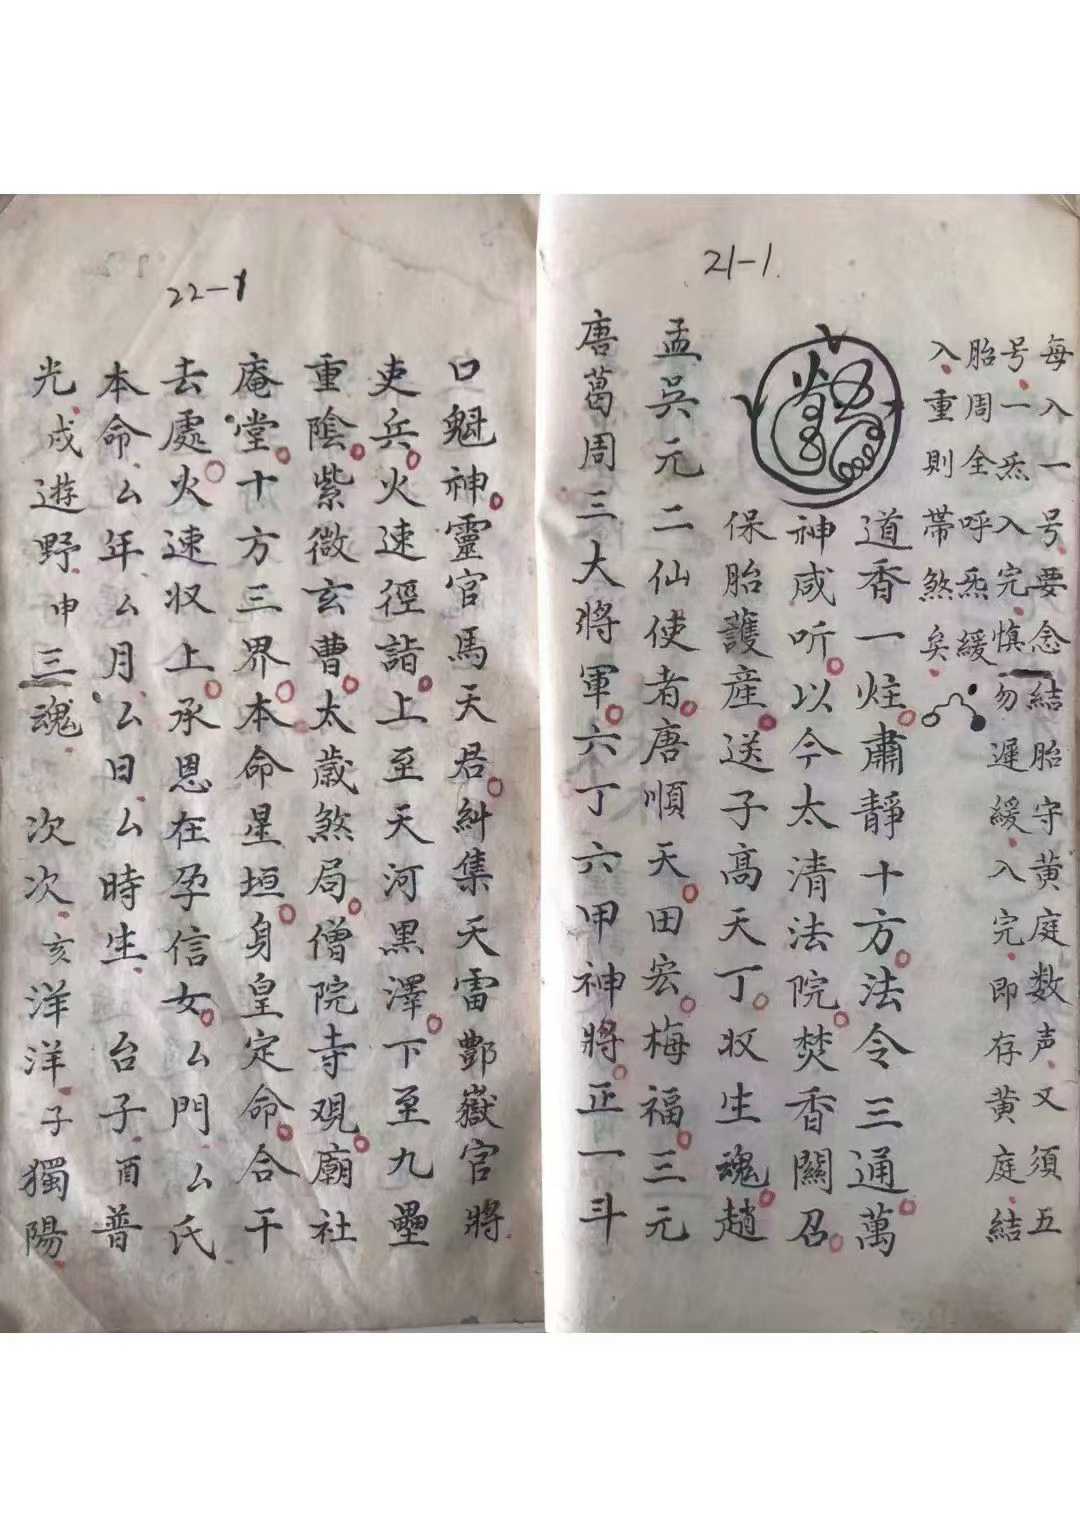 21-1.
每入一号、要念結胎守黄庭数声、又須五
号、一炁入完、慎勿遲緩、入完、即存黄庭、結
胎周全、呼炁緩
入、重則帶煞矣、
道香一炷肅靜十方法令三通萬
神咸听以今太清法院焚香關召
保胎護産送子高天丁收生魂趙
孟吳元二仙使者唐順天田宏梅福三元
唐葛周三大將軍六丁六甲神將正一斗
22-1
口魁神靈官馬天君糾集天雷酆嶽官將
吏兵火速徑詣上至天河黑澤下至九壘
重陰紫微玄曹太歲煞局僧院寺观廟社
庵堂十方三界本命星垣身皇定命合干
去處火速収上承恩在孕信女厶門厶氏
本命厶年厶月厶日厶時生 台子酉普
光戍遊野申三魂 次次亥洋洋子獨陽